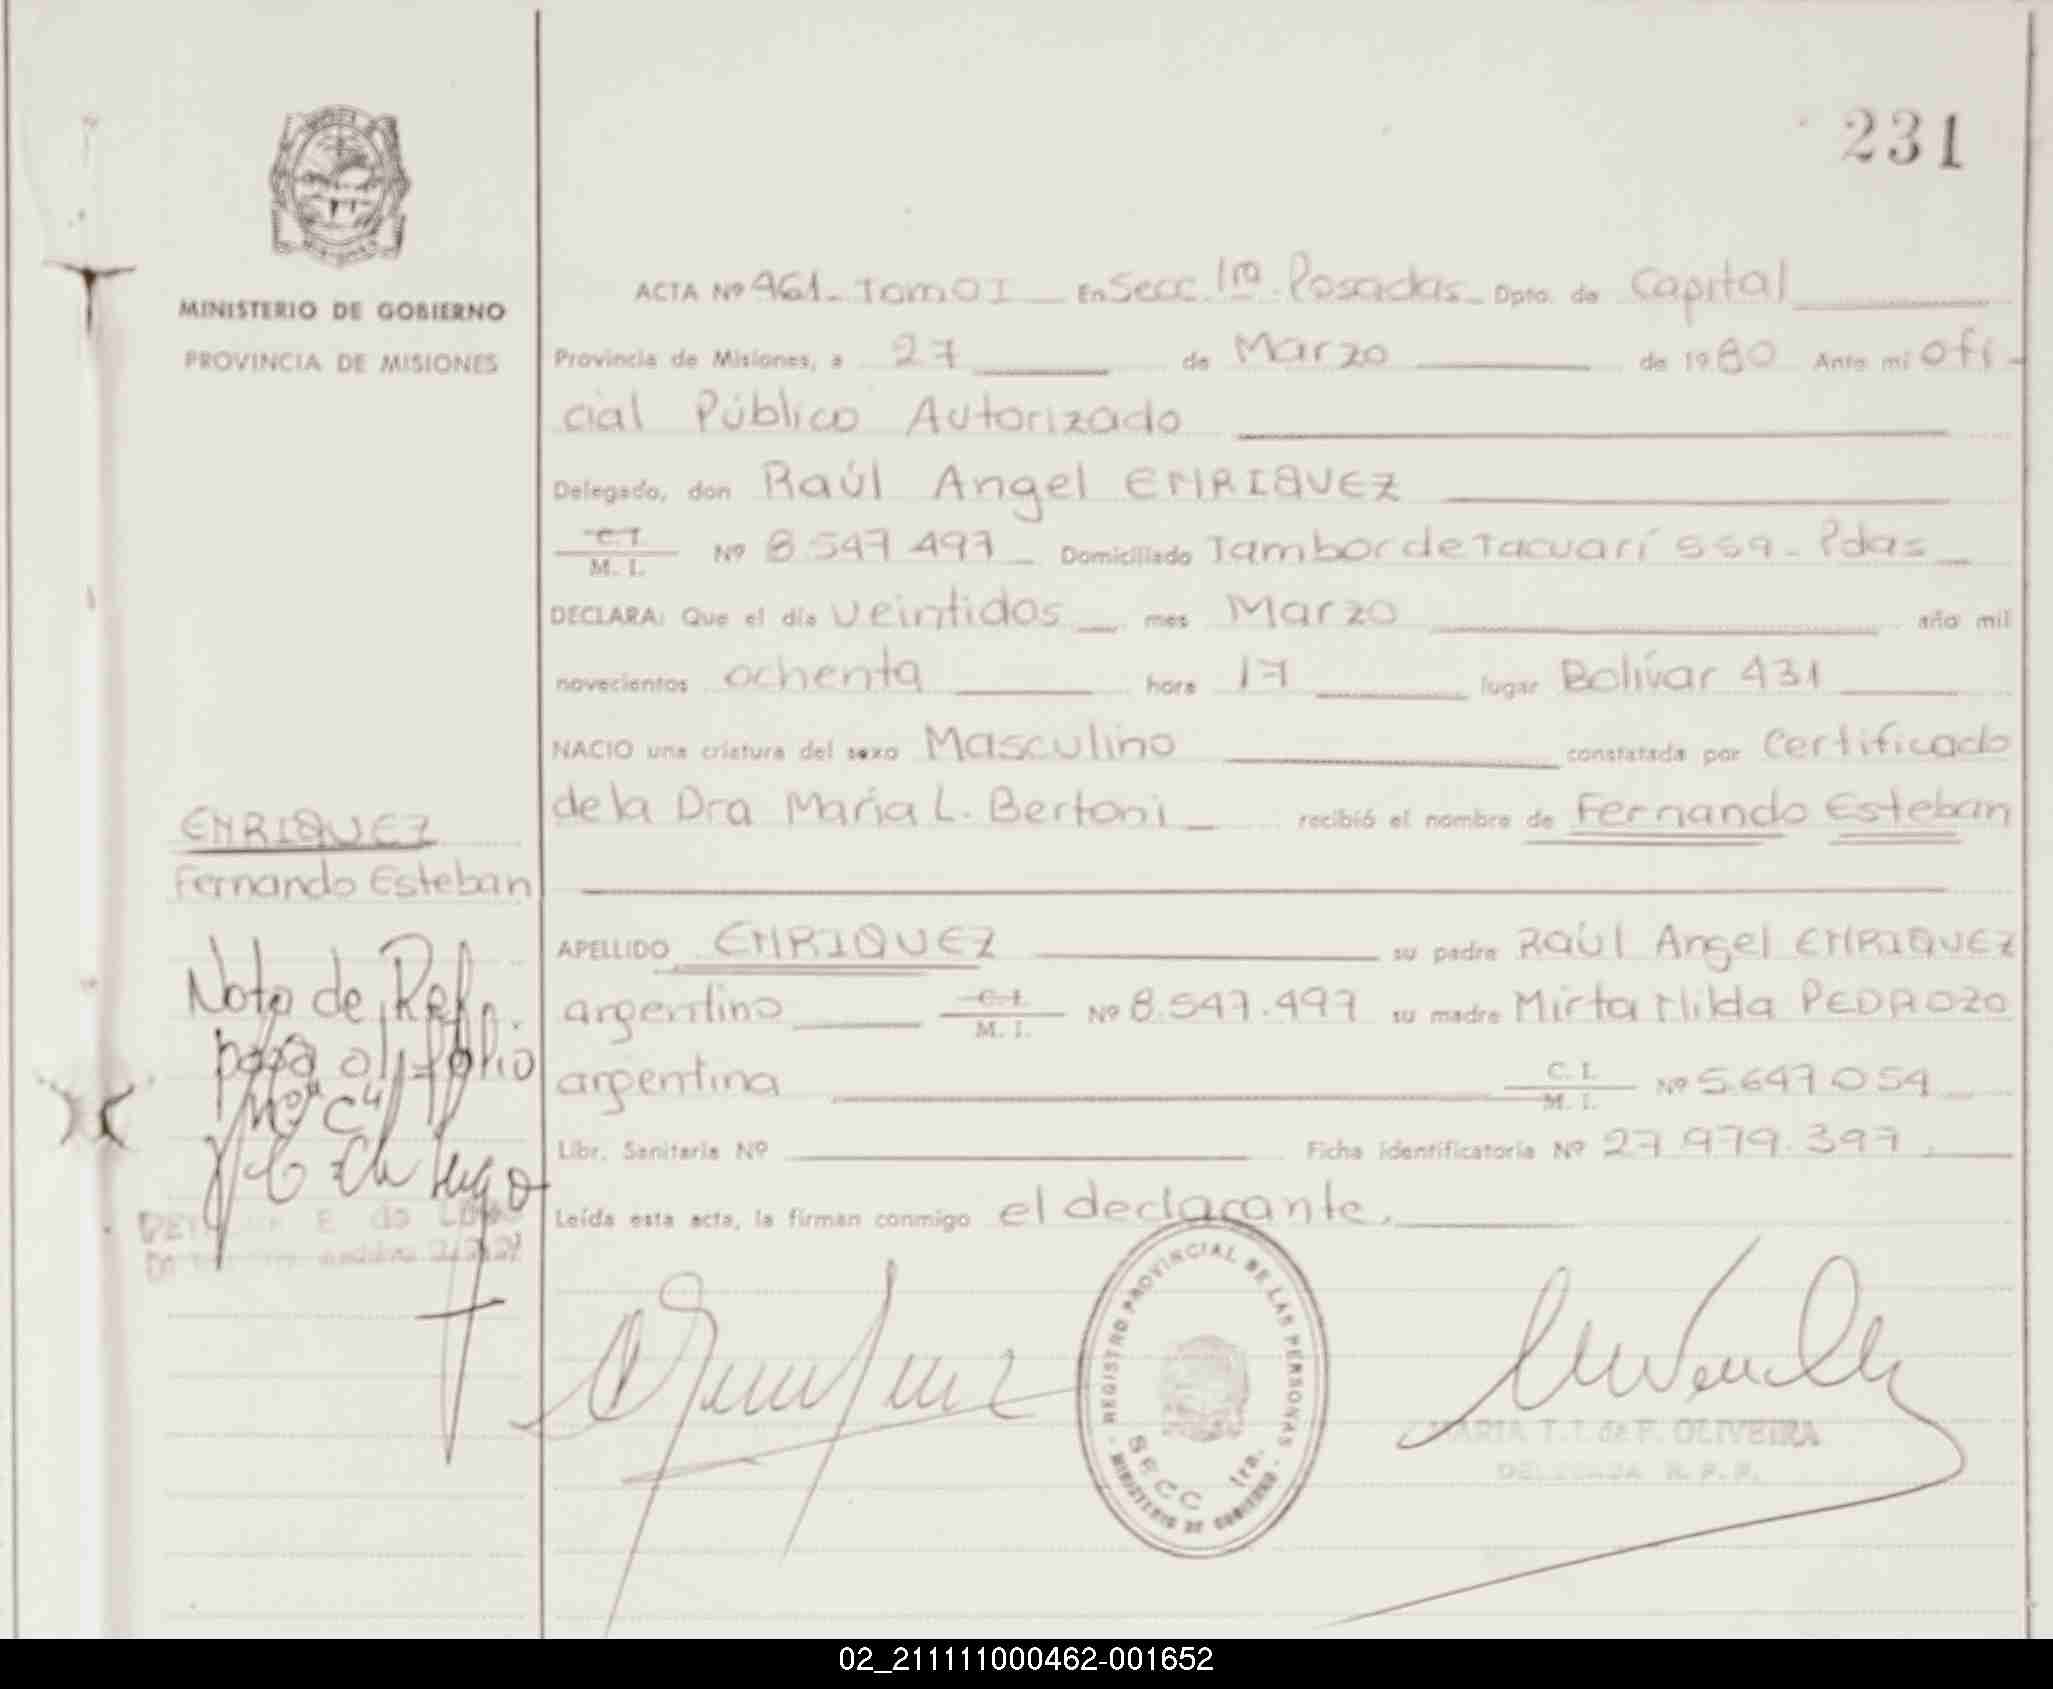 231
MINISTERIO DE GOBIERNO
PROVINCIA DE MISIONES
ACTA Nº 461 - Tomo I En Secc. 1ra. Posadas - Dpto. de Capital
Provincia de Misiones, a 27 de Marzo de 1980 Ante mi Ofi-
cial Público Autorizado
Delegado, don Raúl Angel ENRIQUEZ
C.I. M. I. Nº 8.547.497 Domiciliado Tambor de Tacuarí 559 - Pdas
DECLARA: Que el día veintidos mes Marzo año mil
novecientos ochenta hora 17 lugar Bolívar 431
NACIO una criatura del sexo Masculino constatada por Certificado
de la Dra Maria L. Bertoni recibió el nombre de Fernando Esteban
ENRIQUEZ
Fernando Esteban
APELLIDO ENRIQUEZ su padre Raúl Angel ENRIQUEZ
argentino C.I. M. I. Nº 8.547.497 su madre Mirta Hilda PEDROZO
argentina C. I. M. I. Nº 5.647.054
Libr. Sanitaria Nº Ficha identificatoria Nº 27.979.397
Leída esta acta, la firman conmigo el declarante.
Nota de Ref.
pasa al folio
Nº "C"
REGISTRO PROVINCIAL DE LAS PERSONAS
SECC 1ra.
MINISTERIO DE GOBIERNO
MARIA T. I. de F. OLIVEIRA
DELEGADA R. P. P.
02_211111000462-001652